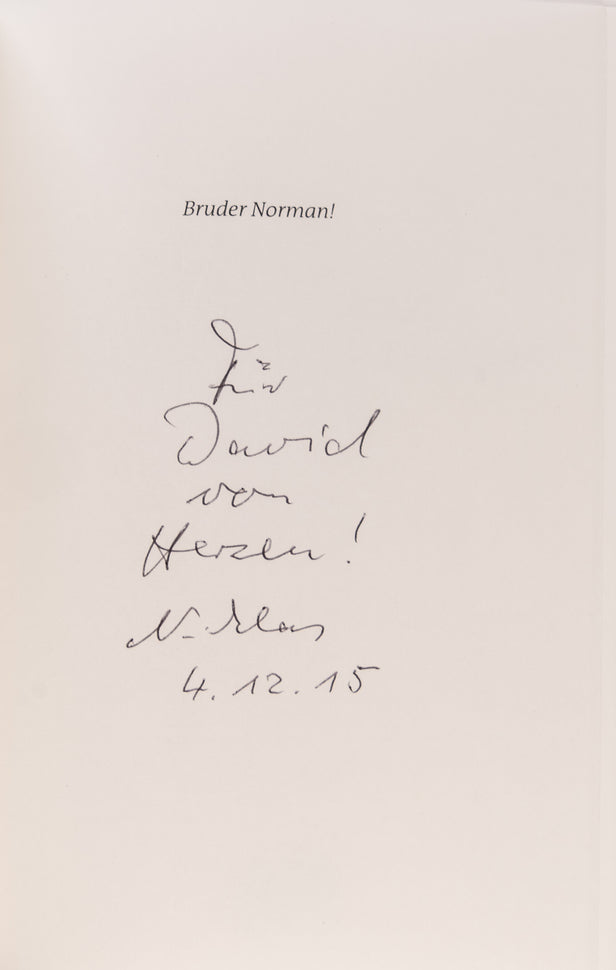 Bruder Norman!
Für
David
von
Herzen!
Niklas
4.12.15